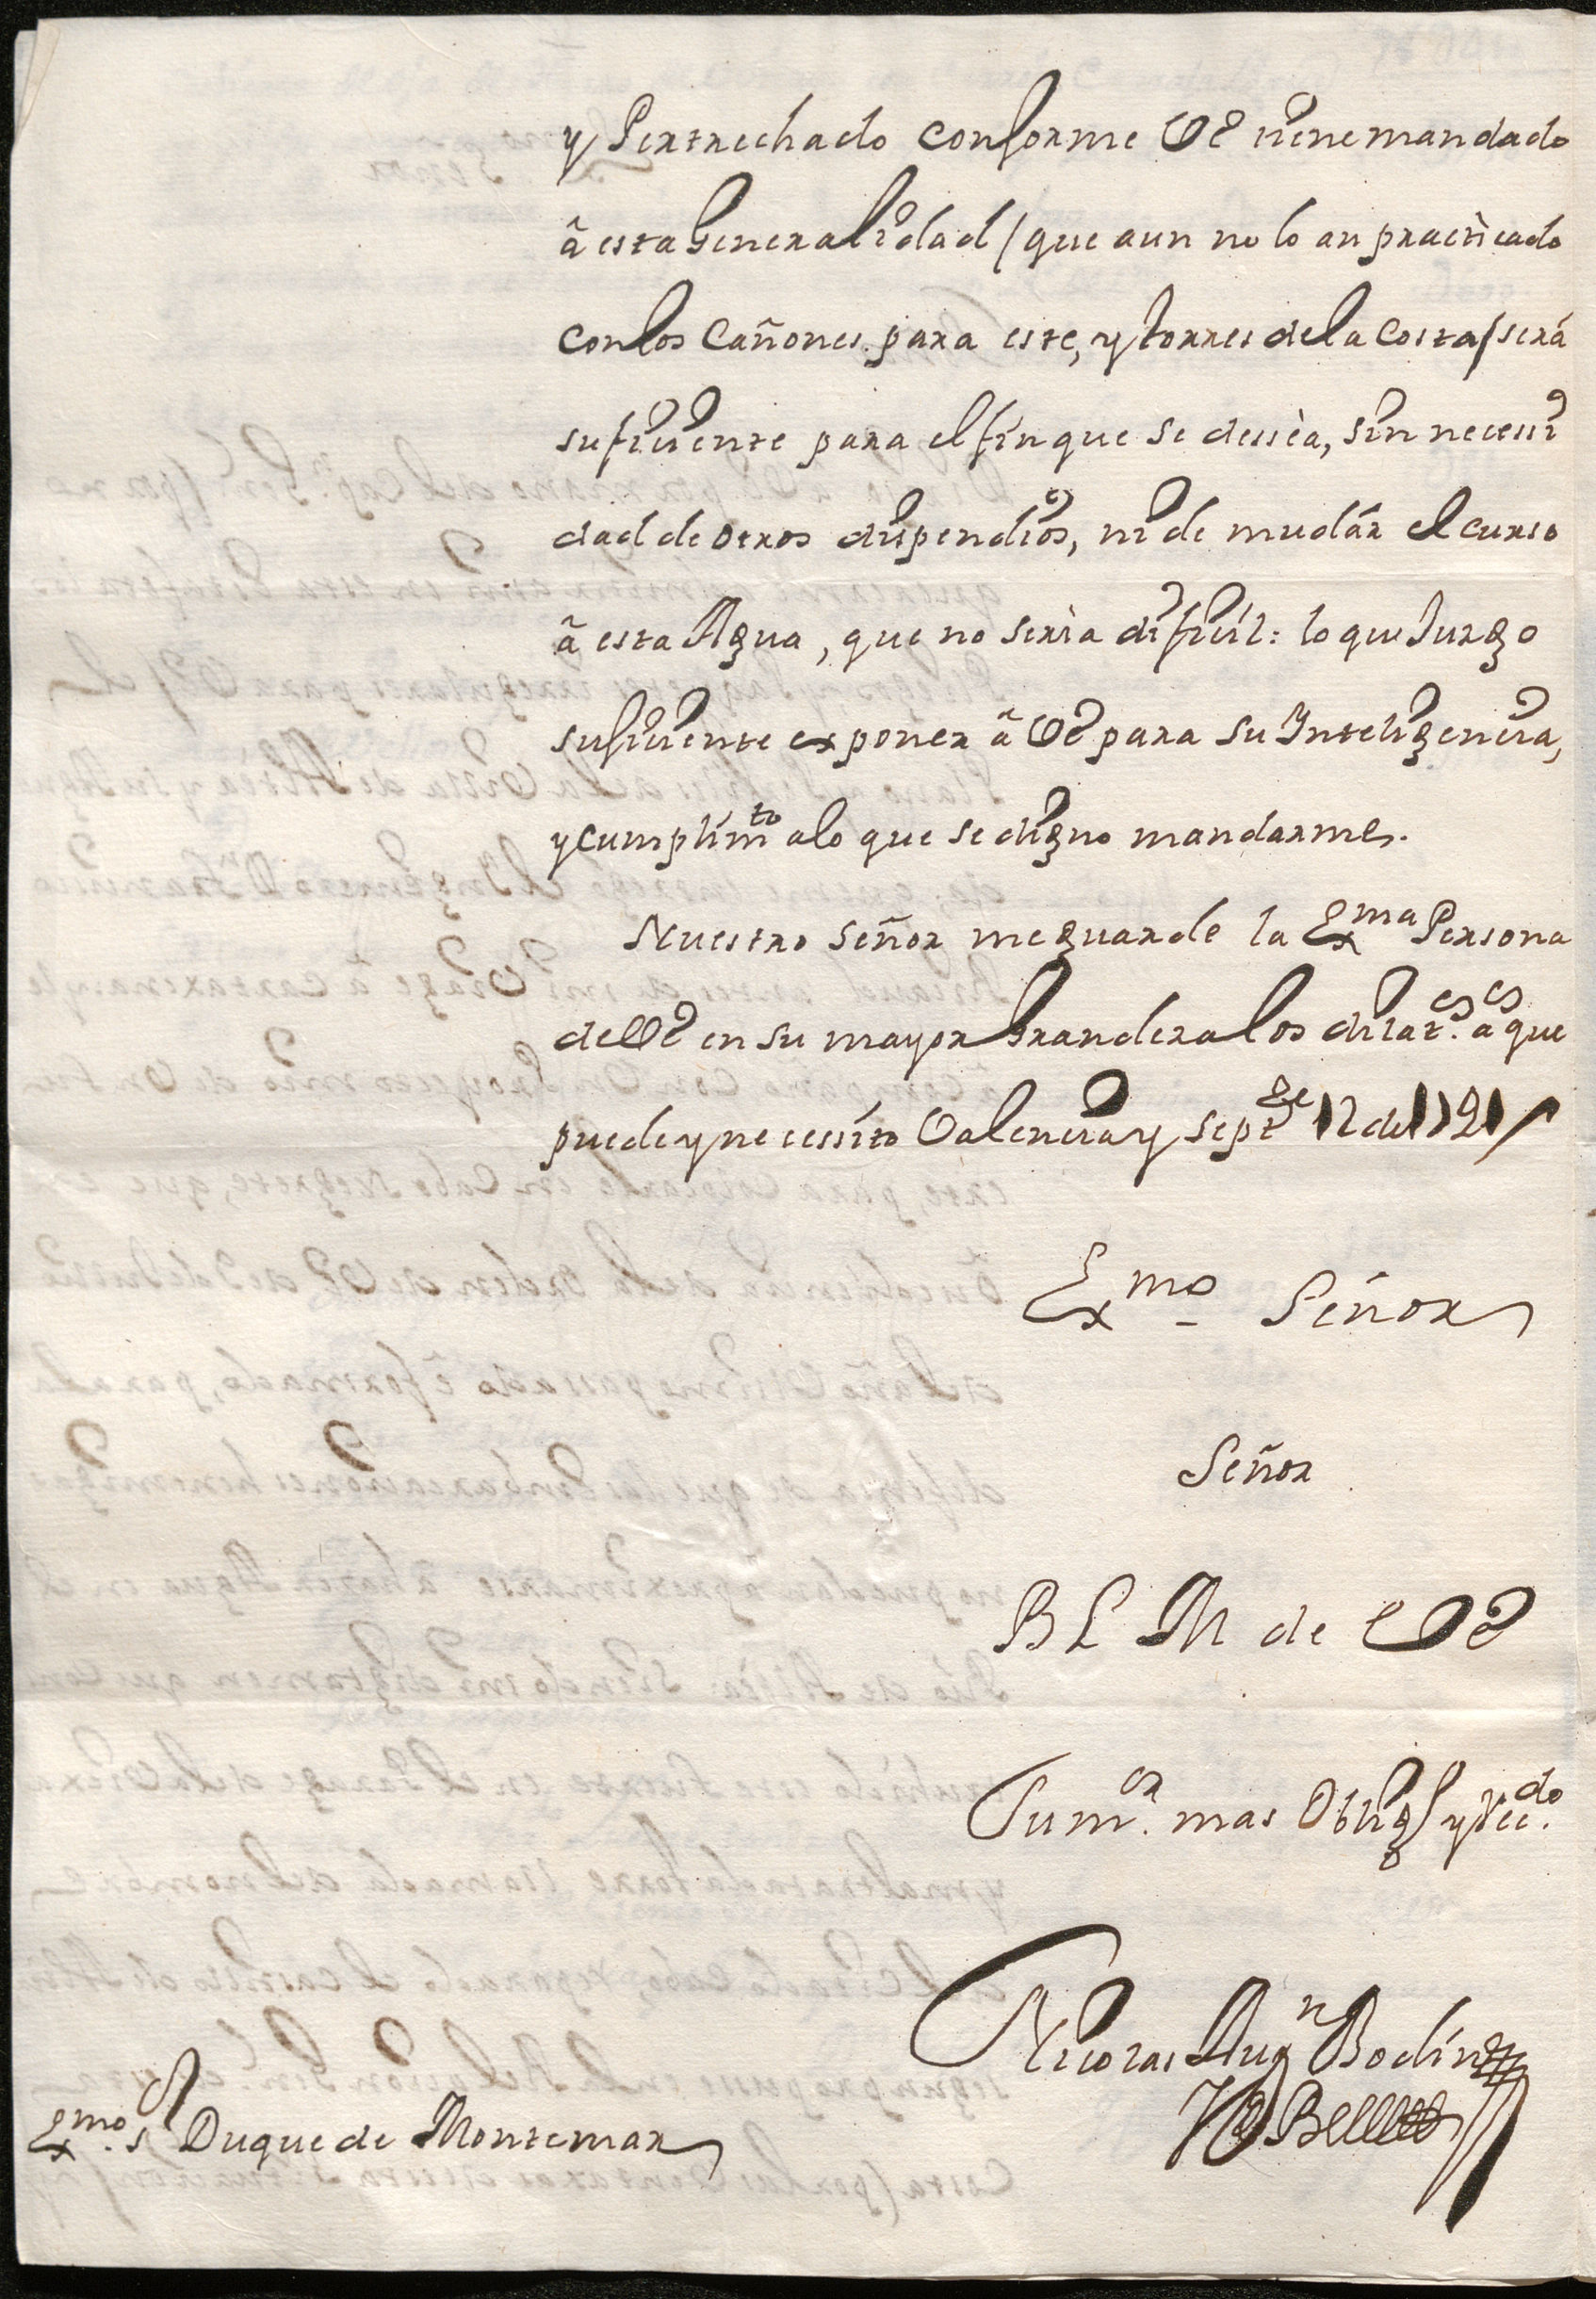 y Pertrechado conforme VE tiene mandado
â esta Generalidad / que aun no lo an practicado
con los Cañones para este, y torres de la Costa / será
suficiente para el fin que se dessèa, sin necessi
dad de otros dispendios, ni de mudár el curso
â esta Agua, que no serìa dificil: lo que Juzgo
suficiente exponer â VE para su Ynteligencia,
y cumplim.to a lo que se digno mandarme.
Nuestro Señor me guarde la Ex.ma Persona
de VE en su mayor Grandeza los dilat.s a.s que
puede y necessíto Valencia y Sept.re 12 de
Ex.mo Señor
Señor
B L M de VE
Su m.or mas Oblig.do y Rec.do
Nicolas Aug.n Bodin
Ex.mo S.r Duque de Montemar